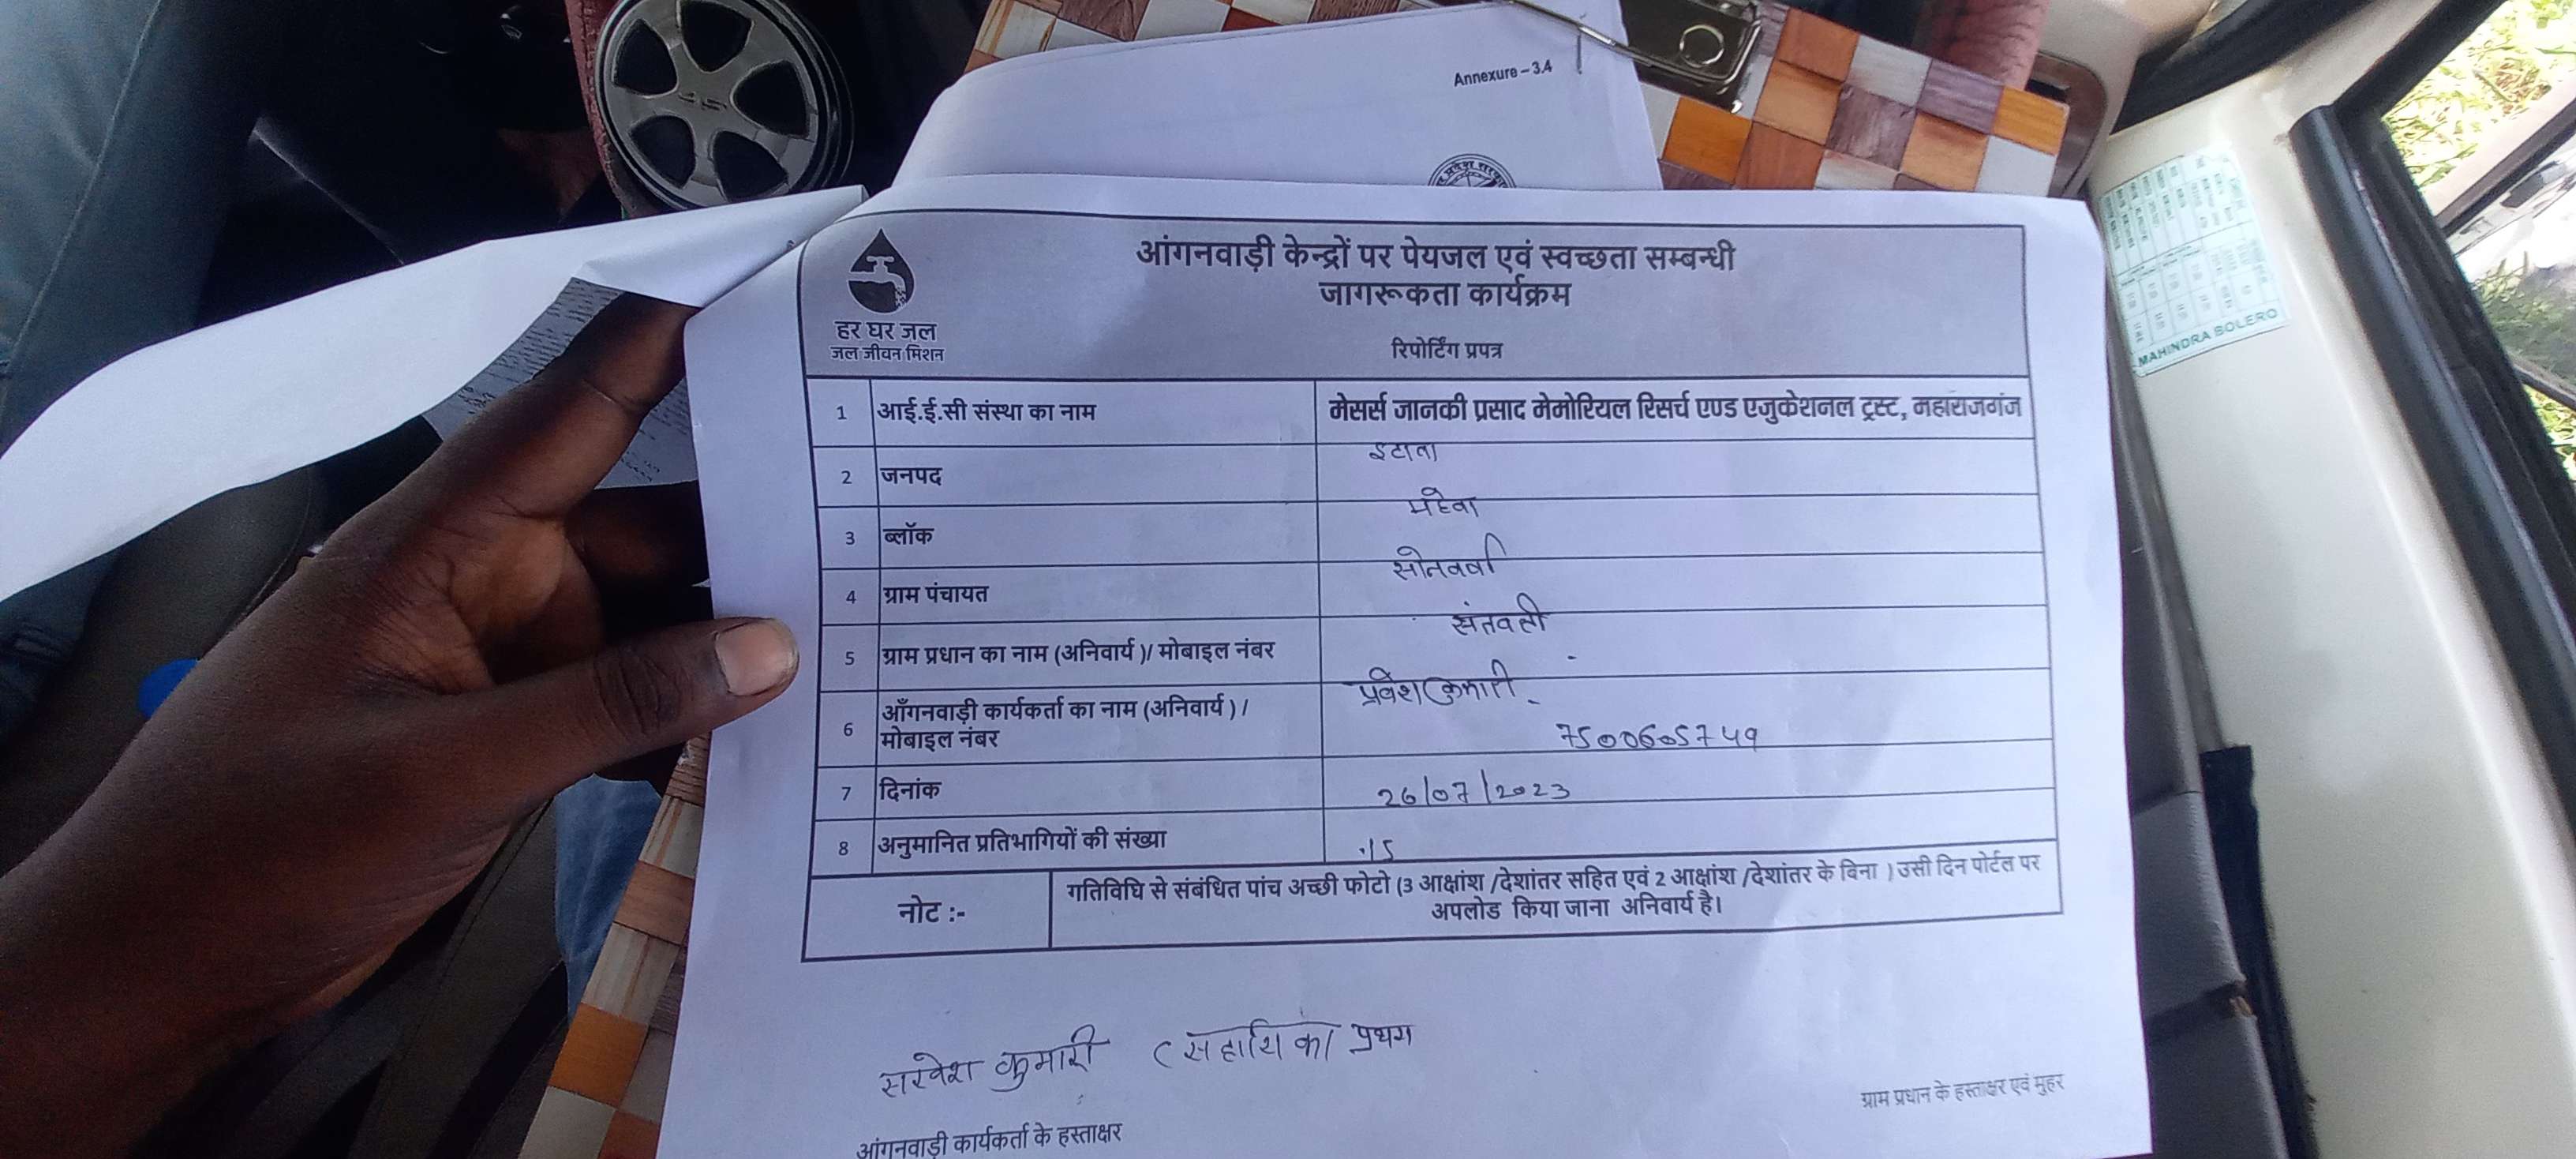 Annexure – 3.4
हर घर जल
जल जीवन मिशन
आंगनवाड़ी केन्द्रों पर पेयजल एवं स्वच्छता सम्बन्धी
जागरूकता कार्यक्रम
रिपोर्टिंग प्रपत्र
1 आई.ई.सी संस्था का नाम मेसर्स जानकी प्रसाद मेमोरियल रिसर्च एण्ड एजुकेशनल ट्रस्ट, महाराजगंज
2 जनपद इटावा
3 ब्लॉक महेवा
4 ग्राम पंचायत
5 ग्राम प्रधान का नाम (अनिवार्य )/ मोबाइल नंबर संतवती
6 आँगनवाड़ी कार्यकर्ता का नाम (अनिवार्य ) /
मोबाइल नंबर
प्रवेश कुमारी
7500605749
7 दिनांक 26/07/2023
8 अनुमानित प्रतिभागियों की संख्या 15
नोट :- गतिविधि से संबंधित पांच अच्छी फोटो (3 आक्षांश /देशांतर सहित एवं 2 आक्षांश /देशांतर के बिना ) उसी दिन पोर्टल पर
अपलोड किया जाना अनिवार्य है।
सरवेश कुमारी (सहायिका प्रथम
ग्राम प्रधान के हस्ताक्षर एवं मुहर
आंगनवाड़ी कार्यकर्ता के हस्ताक्षर
MAHINDRA BOLERO